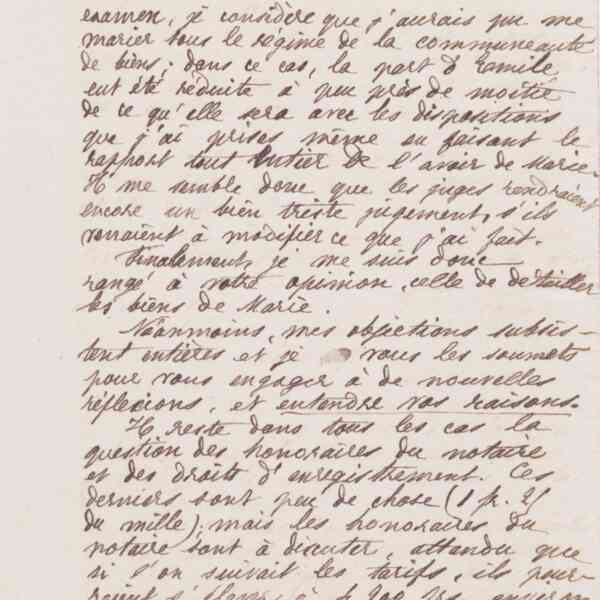 examen, je considère que j'aurais pu me
marier sous le régime de la communauté
de biens; dans ce cas, la part d'Emile
eut été réduite à peu près de moitié
de ce qu'elle sera avec les dispositions
que j'ai prises même en faisant le
rapport tout entier de l'avoir de Marie.
Il me semble donc que les juges rendraient
encore un bien triste jugement, s'ils
venaient à modifier ce que j'ai fait.
Finalement, je me suis donc
rangé à votre opinion, celle de détailler
les biens de Marie.
Néanmoins, mes objections subsis-
tent entières et je vous les soumets
pour vous engager à de nouvelles
réflecions, et entendre vos raisons.
Il reste dans tous les cas la
question des honoraires du notaire
et des droits d'enregistrement. Ces
derniers sont peu de chose (1 fr. 25
du mille); mais les honoraires du
notaire sont à discuter, attendu que
si l'on suivait les tarifs, ils pour-
raient s'élever à environ